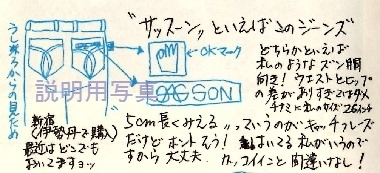 "サッスーン"といえばこのジーンズ
うしろから見ため
OKマーク
SASSON
説明用写真
どちらかといえば
私のようなズン胴
向き！ウエストとヒップ
の差がありすぎてはダメ
チナミに私のサイズ26インチ
新宿
(伊勢丹で購入)
最近はどこでも
おいてますョッ
5cm長くみえる〃っていうのがキャッチフレーズ
だけどホントそう！はいてる私がいうので
すから大丈夫。カッコイイこと間違いなし！